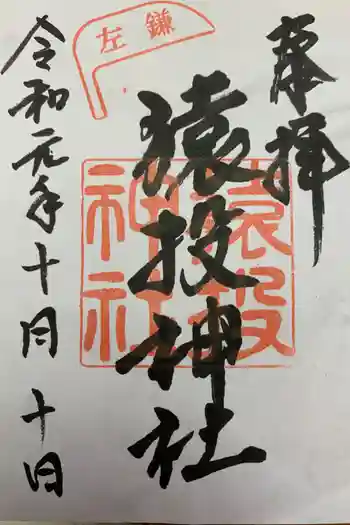 奉拝
猿投神社
猿投神社
左鎌
令和元年十月十日